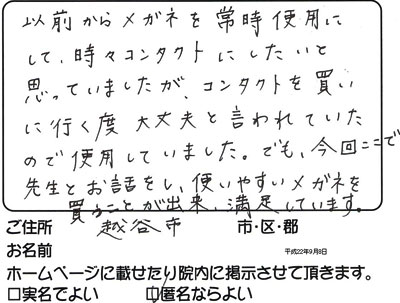 以前からメガネを常時使用に
して、時々コンタクトにしたいと
思っていましたが、コンタクトを買い
に行く度大丈夫と言われていた
ので使用していました。でも、今回ここで
先生とお話をし、使いやすいメガネを
買うことが出来、満足しています。
ご住所 越谷市 市・区・郡
お名前 平成22年9月8日
ホームページに載せたり院内に掲示させて頂きます。
□実名でよい □匿名ならよい